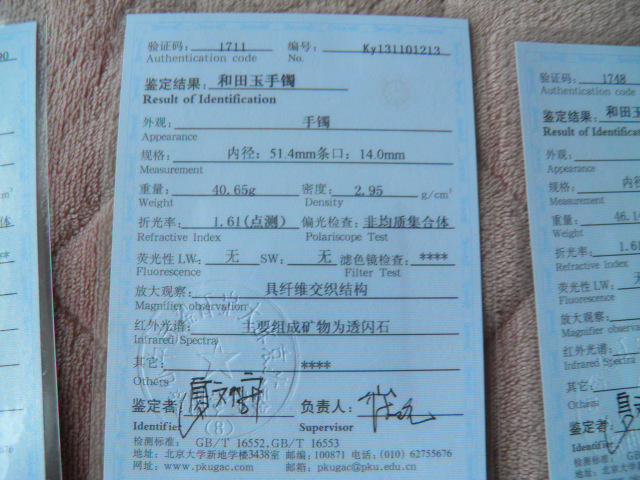 验证码: 1711 编号: Ky131101213
Authentication code No.
鉴定结果: 和田玉手镯
Result of Identification
外观: 手镯
Appearance
规格: 内径：51.4mm条口：14.0mm
Measurement
重量: 40.65g 密度: 2.95 g/cm³
Weight Density
折光率: 1.61(点测) 偏光检查: 非均质集合体
Refractive Index Polariscope Test
荧光性 LW: 无 SW: 无 滤色镜检查: ****
Fluorescence Filter Test
放大观察: 具纤维交织结构
Magnifier observation
红外光谱: 主要组成矿物为透闪石
Infrared Spectra
其它: ****
Others
鉴定者 负责人:
Identifier Supervisor
(8)
检测标准: GB/T 16552, GB/T 16553
地址: 北京大学新地学楼3438室 邮编: 100871 电话: (010) 62755676
网址: www.pkugac.com 邮箱: pkugac@pku.edu.cn
验证码: 1748
Authentication code
鉴定结果: 和田玉
Result of Identifica
外观:
Appearance
规格: 内径
Measurement
重量: 46.1
Weight
折光率: 1.61
Refractive Index
荧光性 LW:
Fluorescence
放大观察:
Magnifier observa
红外光谱:
Infrared Spectra
其它:
Others
鉴定者
Identifier